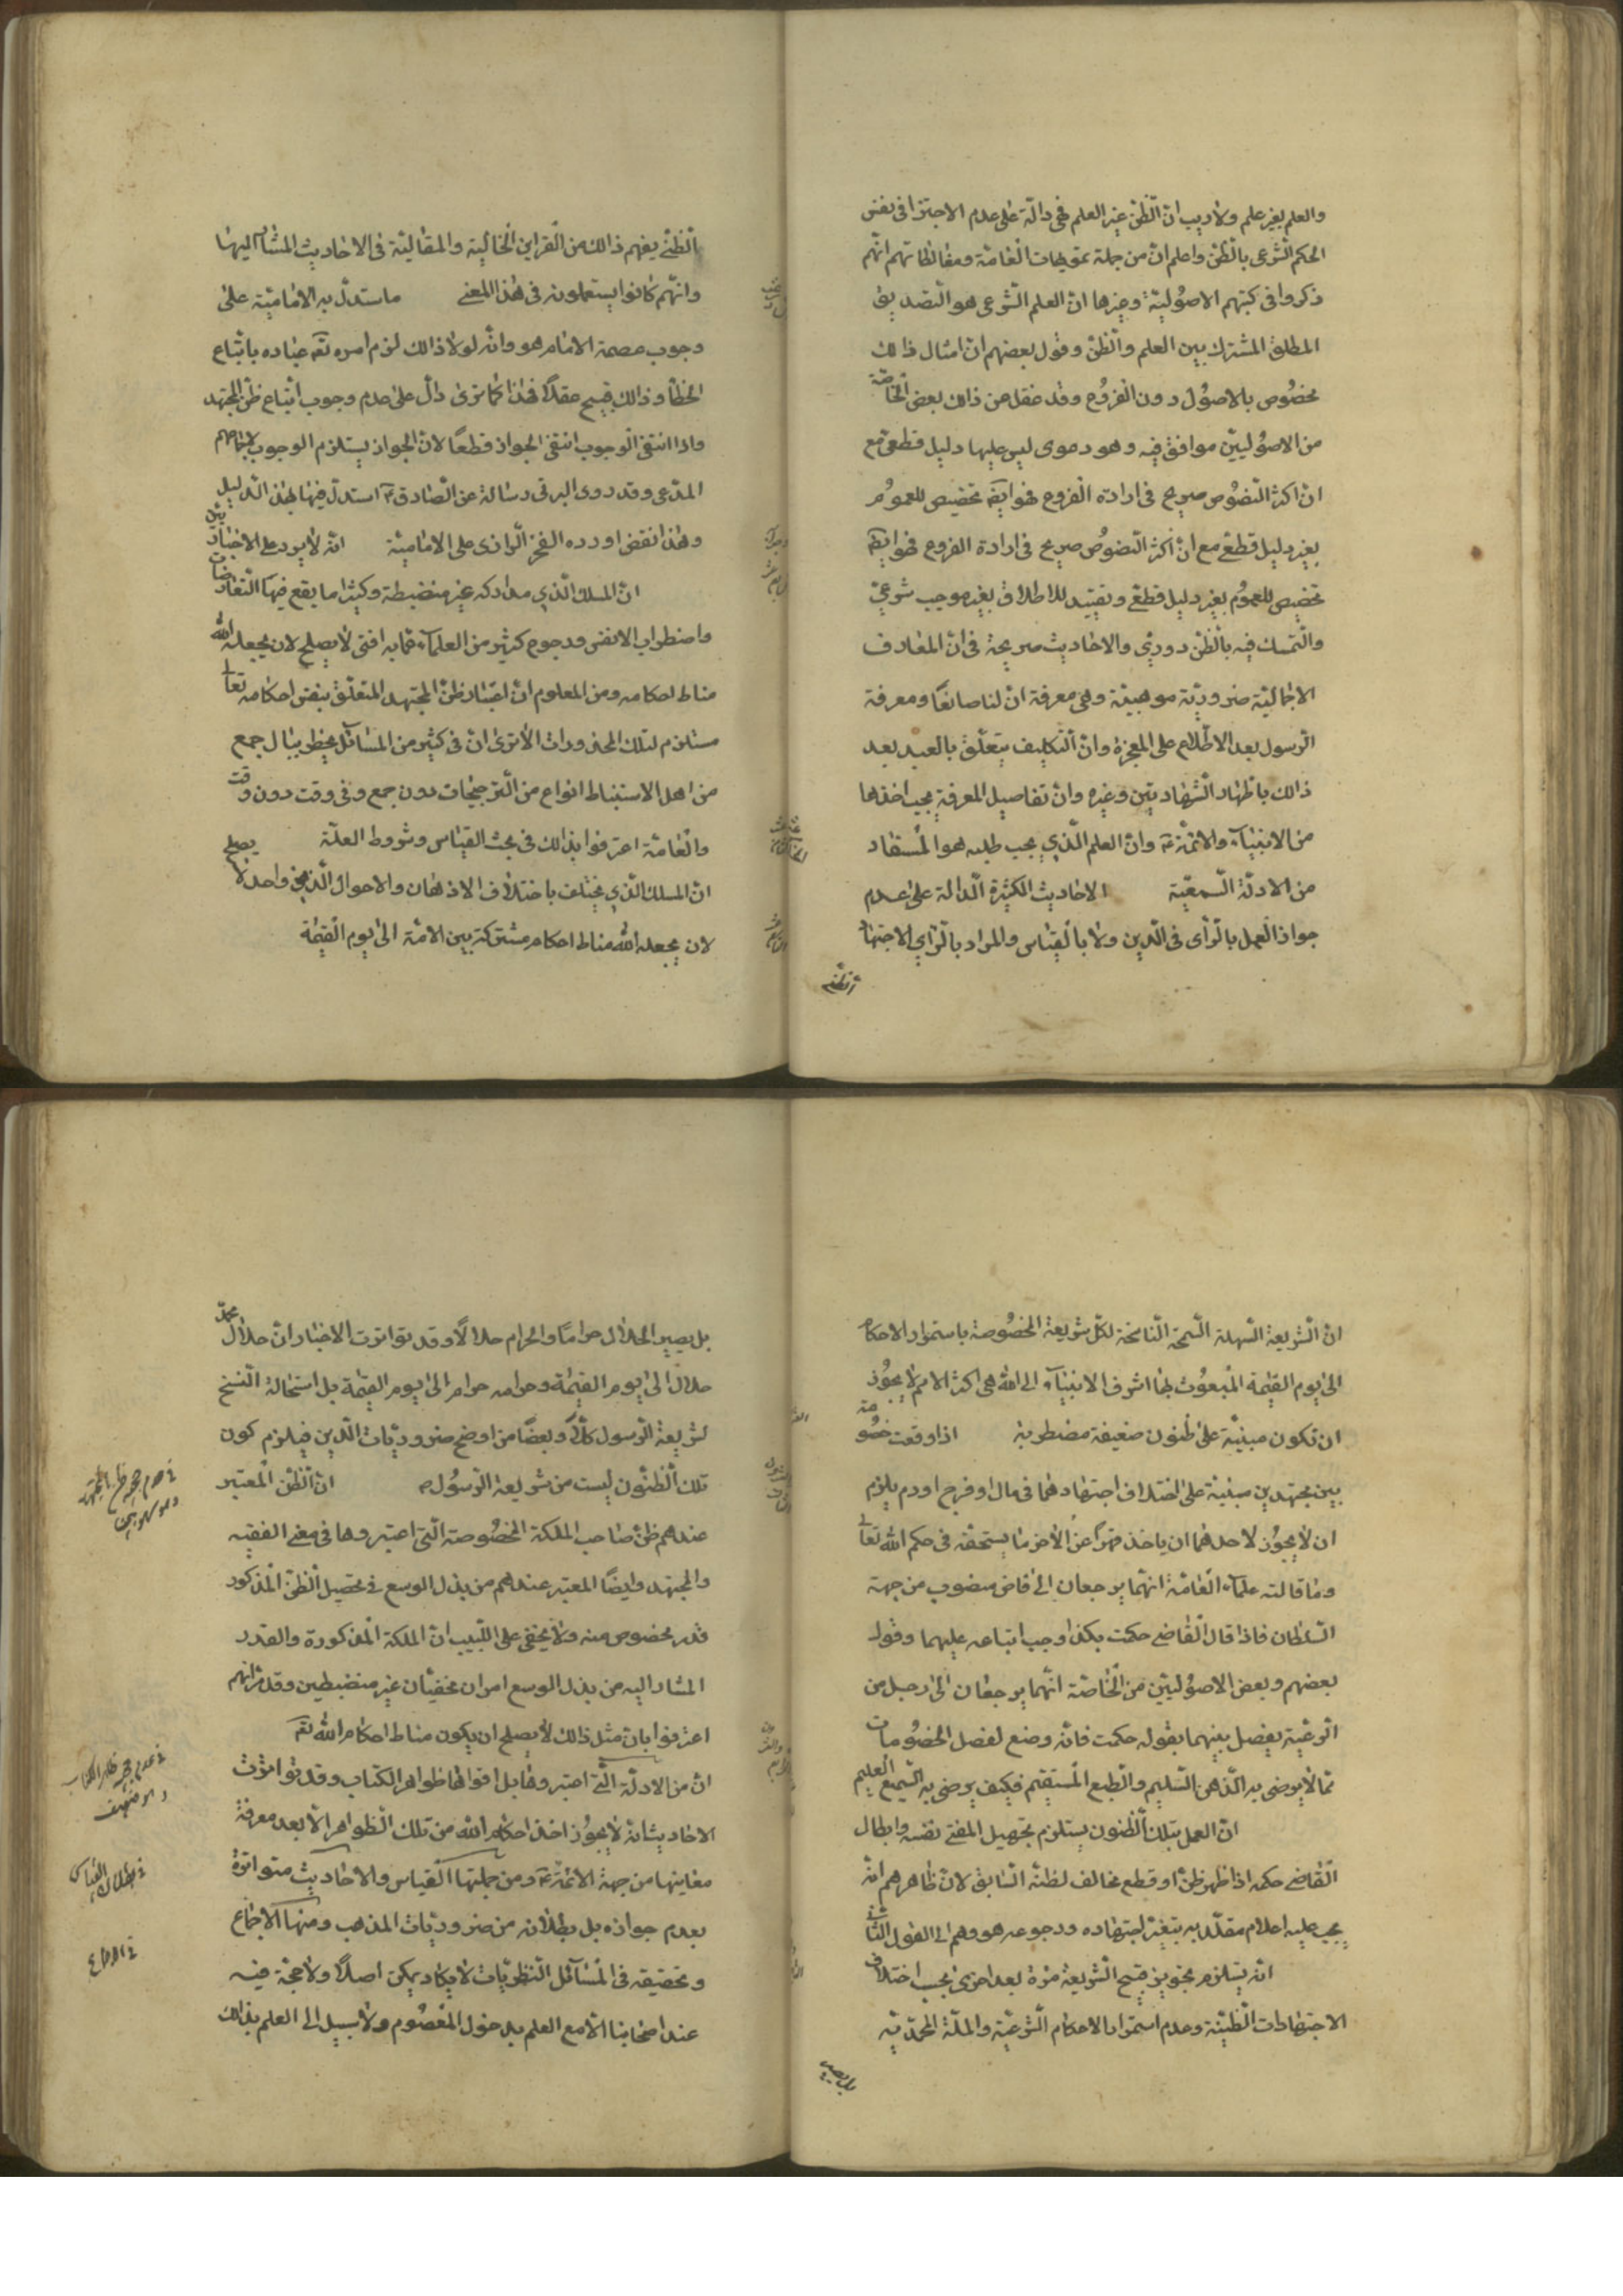 والعلم بغير علم ولا ريب ان الظن غير العلم فهى دالة على عدم الاجتزا فى نفس
الحكم الشرعى بالظن واعلم ان من جملة تمويهات العامة ومغالطاتهم انهم
ذكروا فى كتبهم الاصولية وغيرها ان العلم الشرعى هو التصديق
المطلق المشترك بين العلم والظن وقول بعضهم ان امثال ذالك
مخصوص بالاصول دون الفروع وقد غفل عن ذالك بعض الخاصة
من الاصوليين موافق فيه وهو دعوى ليس عليها دليل قطعى مع
ان اكثر النصوص صريح فى ارادة الفروع فهو ايضا تخصيص للعموم
بغير دليل قطعى مع ان اكثر النصوص صريح فى ارادة الفروع فهو ايضا
تخصيص للعموم بغير دليل قطعى وتقييد للاطلاق بغير موجب شرعى
والتمسك فيه بالظن دورى والاحاديث صريحة فى ان المعارف
الاجمالية ضرورية موهبية وهى معرفة ان لنا صانعا ومعرفة
الرسول بعد الاطلاع على المعجزة وان التكليف يتعلق بالعبد بعد
ذالك باظهار الشهادتين وغيره وان تفاصيل المعرفة يجب اخذها
من الانبياء والائمة ع وان العلم الذي يجب طلبه هو المستفاد
من الادلة السمعية الاحاديث الكثيرة الدالة على عدم
جواز العمل بالرأى فى الدين ولا بالقياس والمراد بالرأي الاجتهاد
الظنى
الظنى يفهم ذالك من القراين الحالية والمقالية فى الاحاديث المشار اليها
وانهم كانوا يستعملونه فى هذا المعنى ما استدل به الامامية على
وجوب عصمة الامام هو وانه لولا ذالك لزم امره تعه عباده باتباع
الخطأ وذالك قبيح عقلا فهذا كما ترى دال على عدم وجوب اتباع ظن المجتهد
واذا انتفى الوجوب انتفى الجواز قطعا لان الجواز يستلزم الوجوب لاجماعهم
المدعى وقد روى البرقى رسالة عن الصادق ع استدل فيها بهذا الدليل
وهذا نقض اورده الفخر الرازى على الامامية انه لا يرد على الاخباريين
ان المسلك الذي مداركه غير منضبطة وكثيرا ما يقع فيها التعارضات
واضطراب الانفس ورجوع كثير من العلماء عما به افتى لا يصلح لان يجعله الله
مناط احكامه ومن المعلوم ان اعتبار ظن المجتهد المتعلق بنفس احكامه تعالى
مستلزم لتلك المحذورات الا ترى ان فى كثير من المسائل يخطر ببال جمع
من اهل الاستنباط انواع من الترجيحات دون جمع وفى وقت دون وقت
والعامة اعترفوا بذالك فى بحث القياس وشروط العلة
ان المسلك الذي يختلف باختلاف الاذهان والاحوال الذهن واحد لا يصلح
لان يجعله الله مناط احكام مشتركة بين الامة الى يوم القيمة
ان الشريعة السهلة السمحة الناسخة لكل شريعة المخصوصة باستمرار الاحكام
الى يوم القيمة المبعوث بها اشرف الانبياء الى الله هى اكثر الامم لا يجوز
ان تكون مبنية على ظنون ضعيفة مضطربة اذا وقعت خصومة
بين مجتهدين مبنية على اختلاف اجتهادهما فى مال او فرج او دم يلزم
ان لا يجوز لاحدهما ان ياخذ قهرا عن الاخر ما يستحقه فى حكم الله تعالى
وما قالته علماء العامة انهما يرجعان الى قاض منصوب من جهة
السلطان فاذا قال القاضى حكمت بكذا وجب اتباعه عليهما وقول
بعضهم وبعض الاصوليين من الخاصة انهما يرجعان الى رجل من
الرعية يفصل بينهما بقوله حكمت فانه وضع لفصل الخصومات
مما لا يرضى به الذهن السليم والطبع المستقيم فكيف يرضى به السميع العليم
ان العمل بتلك الظنون يستلزم تجهيل المفتى نفسه وابطال
القاضى حكمه اذا ظهر ظن او قطع مخالف لظنه السابق لان ظاهرهم انه
يجب عليه اعلام مقلديه بتغير اجتهاده ورجوعه هو وهم الى القول الثانى
انه يستلزم تجويز قبيح الشريعة مرة بعد اخرى بحسب اختلاف
الاجتهادات الظنية وعدم استمرار الاحكام الشرعية والملة المحمدية
بل يصير
بل يصير الحلال حراما والحرام حلالا وقد تواترت الاخبار ان حلال محمد
حلال الى يوم القيمة وحرامه حرام الى يوم القيمة بل استحالة النسخ
لشريعة الرسول كلا وبعضا من اوضح ضروريات الدين فيلزم كون
تلك الظنون ليست من شريعة الرسول ص ان الظن المعتبر
عندهم ظن صاحب الملكة المخصوصة التى اعتبروها فى معنى الفقيه
والمجتهد وايضا المعتبر عندهم من بذل الوسع فى تحصيل الظن المذكور
قدر مخصوص منه ولا يخفى على اللبيب ان الملكة المذكورة والقدر
المشار اليه من بذل الوسع امران مخفيان غير منضبطين وقد مر انهم
اعترفوا بان مثل ذالك لا يصلح ان يكون مناط احكام الله تعه
ان من الادلة التى اعتبروها بل اقواها ظواهر الكتاب وقد تواترت
الاحاديث انه لا يجوز اخذ احكام الله من تلك الظواهر الا بعد معرفة
معانيها من جهة الائمة ع ومن جملتها القياس والاحاديث متواترة
بعدم جوازه بل بطلانه من ضروريات المذهب ومنها الاجماع
وتحقيقه فى المسائل النظريات لا يكاد يمكن اصلا ولا حجة فيه
عند اصحابنا الا مع العلم بدخول المعصوم ولا سبيل الى العلم بذالك
فى عدم حجية ظن المجتهد
فى عدم حجية ظاهر الكتاب
فى بطلان القياس
فى الاجماع